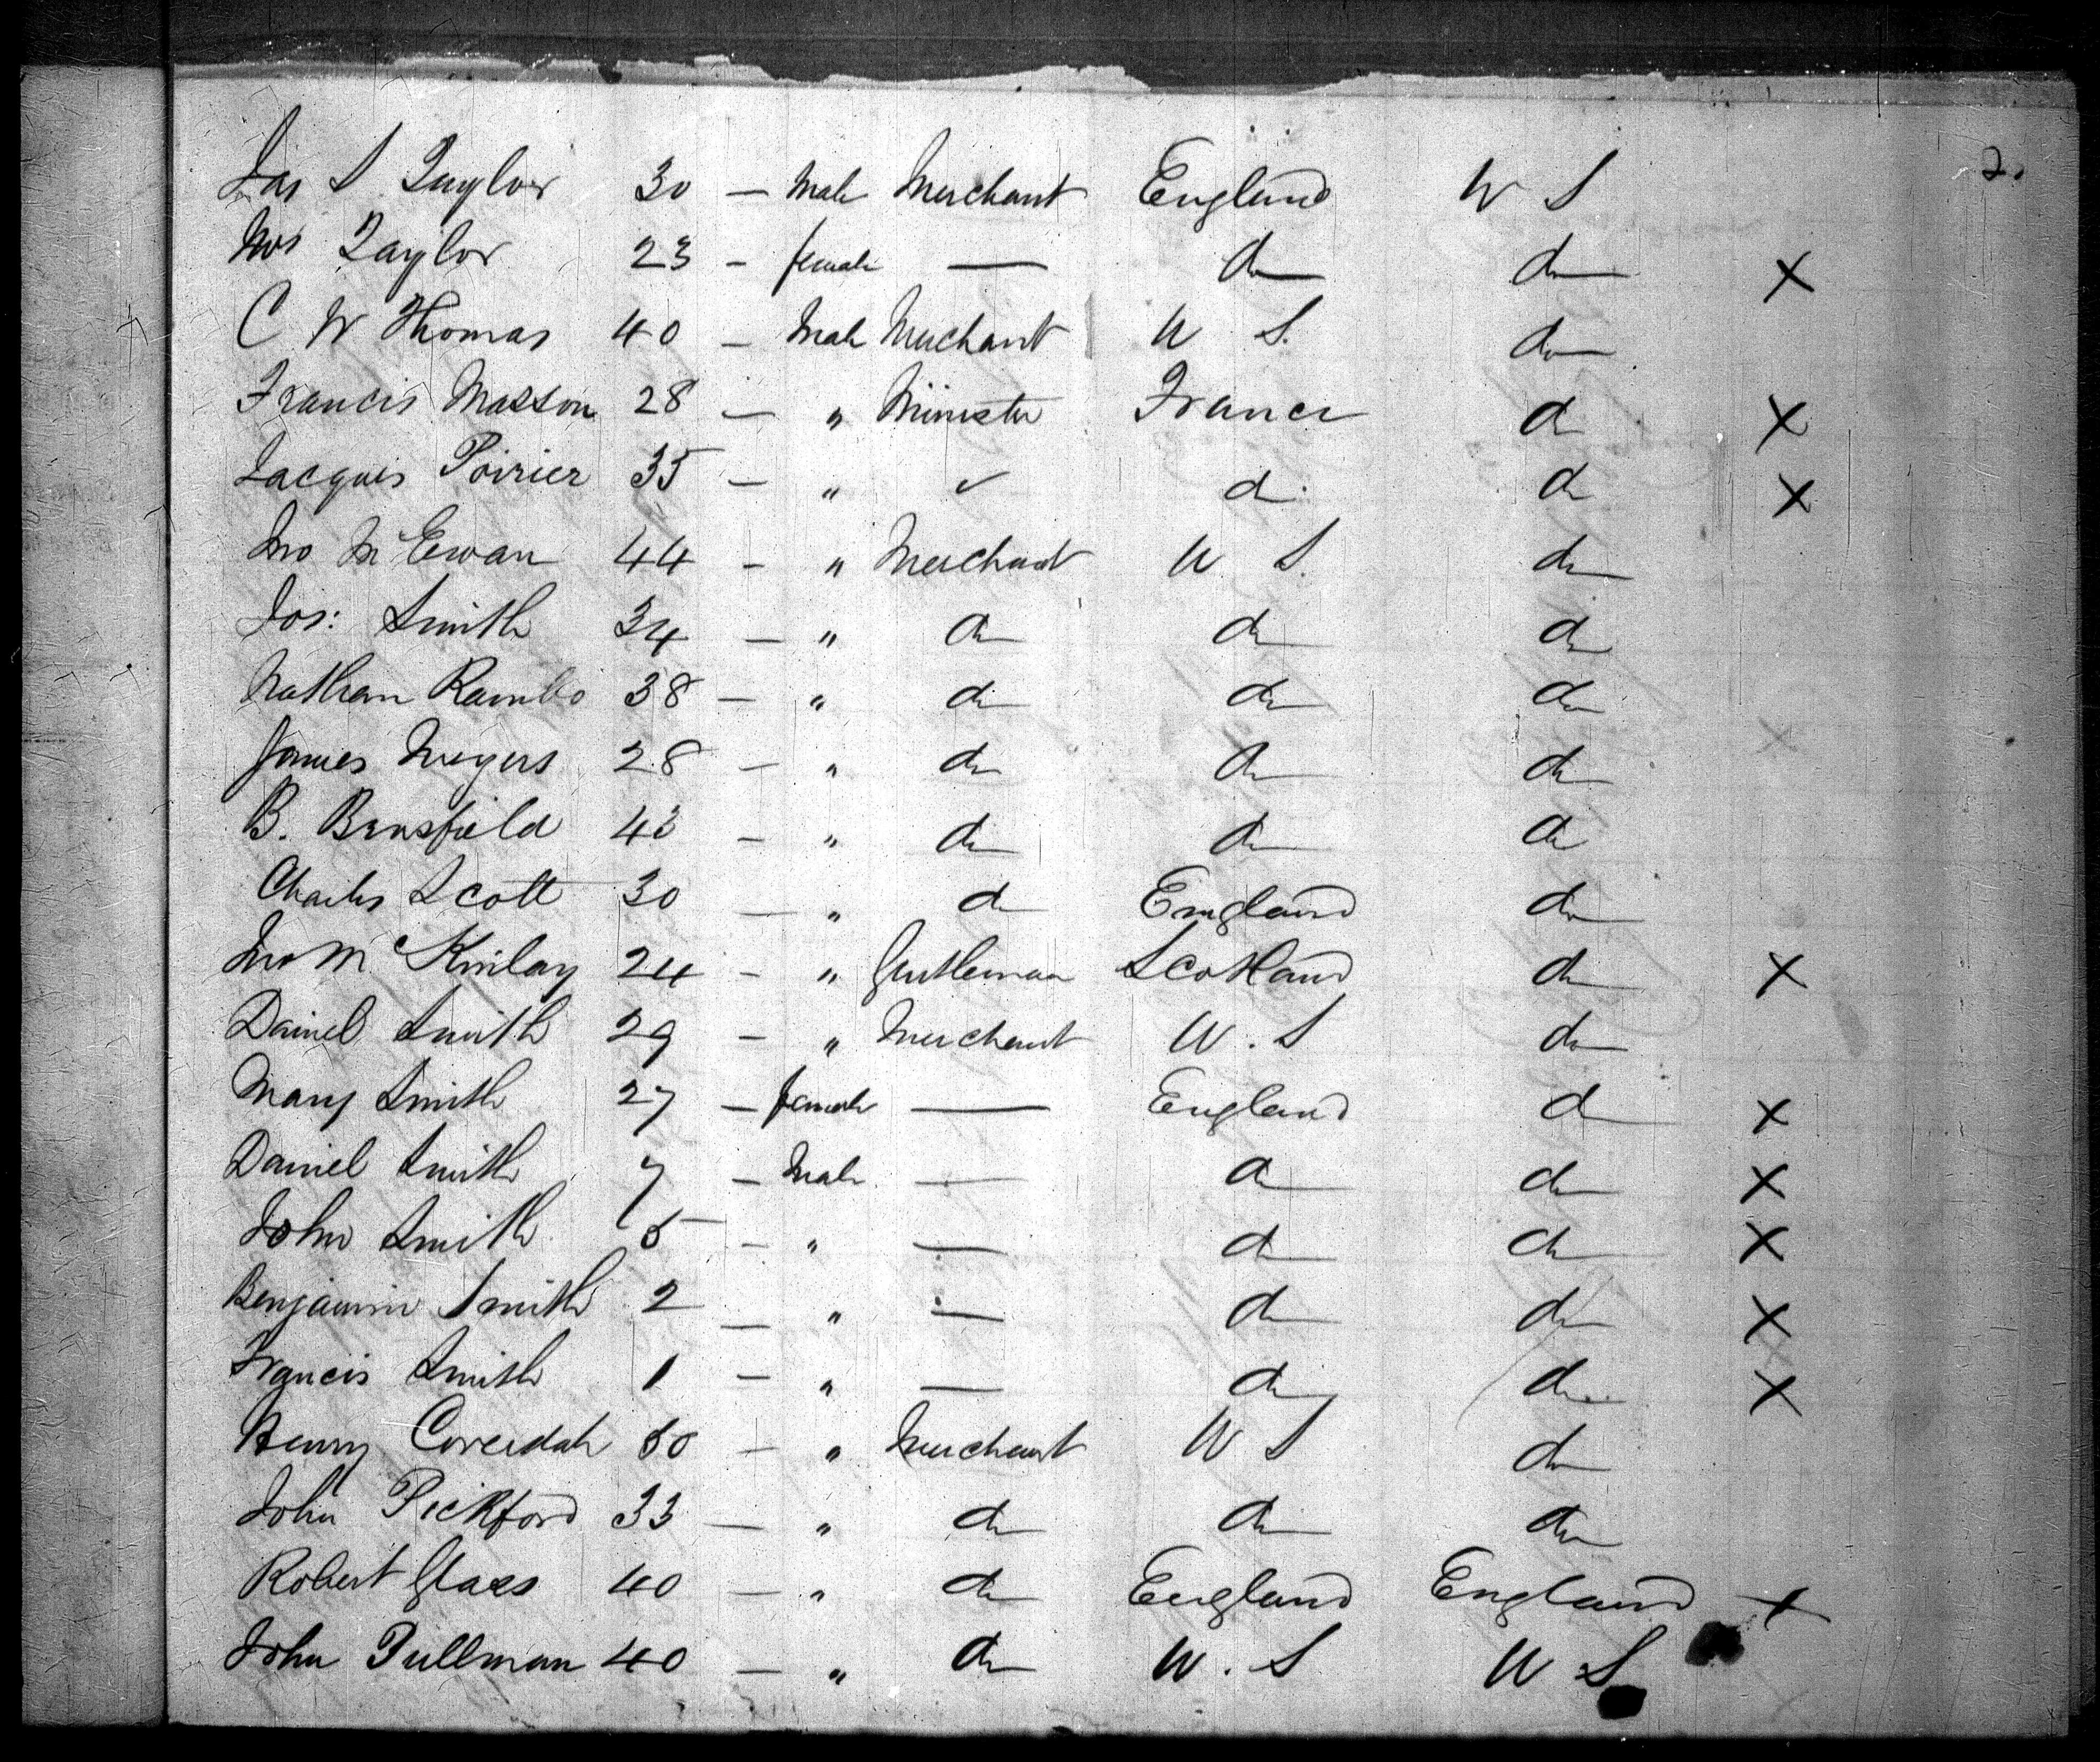 2.
Jas S Taylor 30 — Male Merchant England U S
Mrs Taylor 23 - female — do do X
C W Thomas 40 - Male Merchant U S. do
Francis Masson 28 — " Minister France do X
Jacques Poirier 35 - " ✓ do do X
Jno McEwan 44 - " Merchant U S. do
Jos: Smith 34 — " do do do
Nathan Rambo 38 — " do do do X
James Meyers 28 - " do do do
B. Bransfield 43 - " do do do
Charles Scott 30 — " do England do
Jno McKinlay 24 - " Gentleman Scotland do X
Daniel Smith 29 - " Merchant U. S do
Mary Smith 27 — female — England do X
Daniel Smith 7 - Male — do do X
John Smith 5 - " — do do X
Benjamin Smith 2 — " — do do X
Francis Smith 1 - " — do do X
Henry Coverdale 50 - " Merchant U S do
John Pickford 33 — " do do do
Robert Glass 40 — " do England England X
John Pullman 40 — " do U. S U S